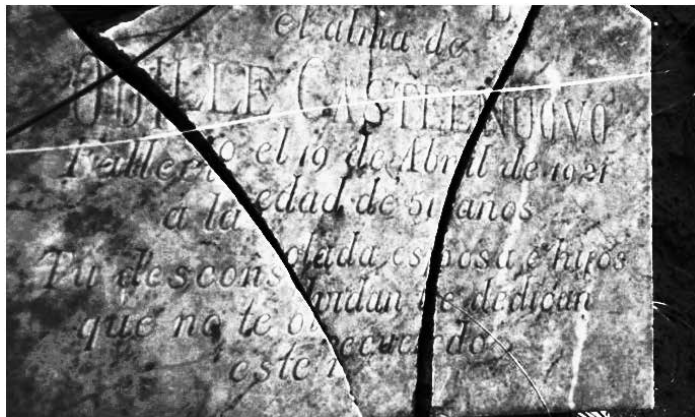 el alma de
CASTELNUOVO
Falleció el 19 de Abril de 1921
a la edad de 51 años
Tu desconsolada esposa e hijos
que no te olvidan te dedican
este recuerdo